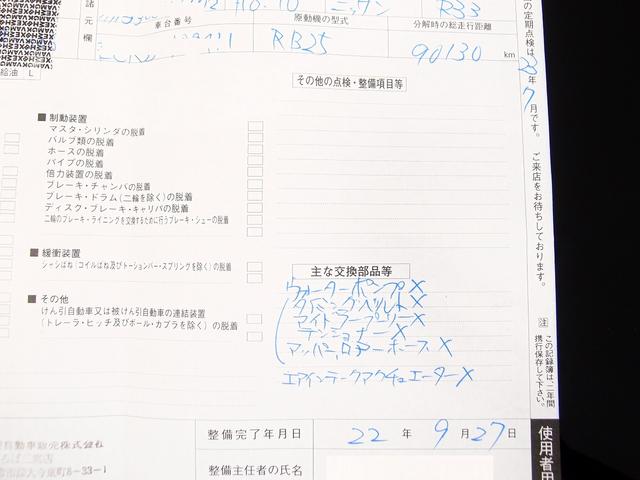 諸元欄
H6.10 ニッサン R33
車台番号
原動機の型式
分解時の総走行距離
RB25
90130 km
給油 L
その他の点検・整備項目等
の定期点検は
23年7月です。
ご来店をお待ちしております。
■ 制動装置
マスタ・シリンダの脱着
バルブ類の脱着
ホースの脱着
パイプの脱着
倍力装置の脱着
ブレーキ・チャンバの脱着
ブレーキ・ドラム(二輪を除く)の脱着
ディスク・ブレーキ・キャリパの脱着
二輪のブレーキ・ライニングを交換するために行うブレーキ・シューの脱着
■ 緩衝装置
シャシばね(コイルばね及びトーションバー・スプリングを除く)の脱着
■ その他
けん引自動車又は被けん引自動車の連結装置
(トレーラ・ヒッチ及びボール・カプラを除く)の脱着
主な交換部品等
ウォーターポンプ ×
タイミングベルト ×
アイドラープーリー ×
テンショナー ×
アッパー,ロアーホース ×
エアインテークアクチュエーター ×
注 この記録簿は、二年間
携行保存して下さい。
整備完了年月日
22 年 9 月 27 日
使用者用
自動車販売株式会社
8-33-1
整備主任者の氏名